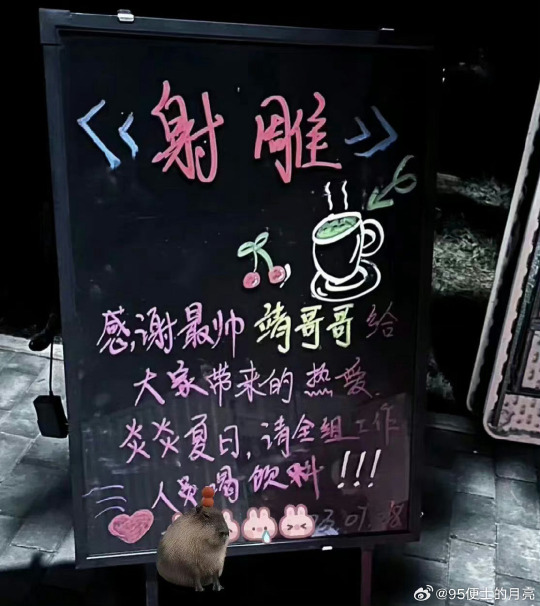 《射雕》
感谢最帅靖哥哥给
大家带来的热爱.
炎炎夏日,请全组工作
人员喝饮料!!!
@95便士的月亮